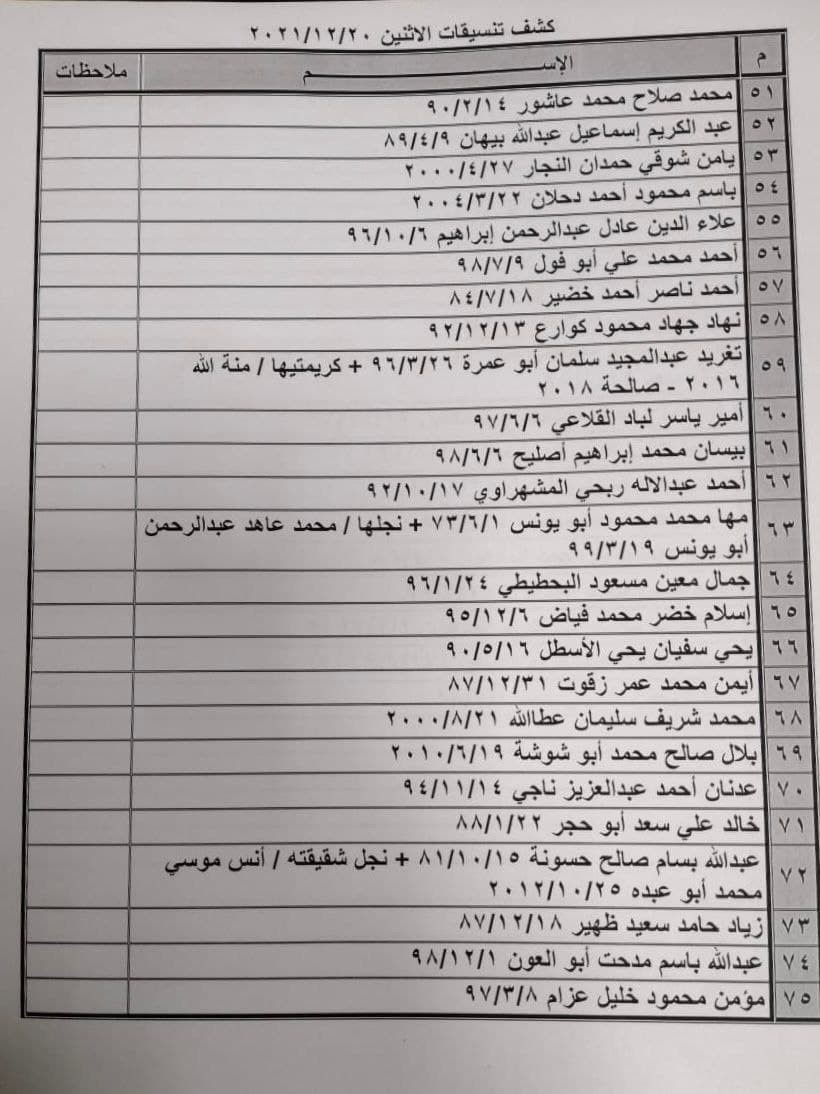 كشف تنسيقات الاثنين ٢٠٢١/١٢/٢٠
م الإســـم ملاحظات
٥١ محمد صلاح محمد عاشور ٩٠/٢/١٤
٥٢ عبد الكريم إسماعيل عبدالله بيهان ٨٩/٤/٩
٥٣ يامن شوقي حمدان النجار ٢٠٠٠/٤/٢٧
٥٤ باسم محمود أحمد دحلان ٢٠٠٤/٣/٢٢
٥٥ علاء الدين عادل عبدالرحمن إبراهيم ٩٦/١٠/٦
٥٦ أحمد محمد علي أبو فول ٩٨/٧/٩
٥٧ أحمد ناصر أحمد خضير ٨٤/٧/١٨
٥٨ نهاد جهاد محمود كوارع ٩٢/١٢/١٣
٥٩ تغريد عبدالمجيد سلمان أبو عمرة ٩٦/٣/٢٦ + كريمتيها / منة الله
٢٠١٦ - صالحة ٢٠١٨
٦٠ أمير ياسر لباد القلاعي ٩٧/٦/٦
٦١ بيسان محمد إبراهيم أصليح ٩٨/٦/٦
٦٢ أحمد عبدالاله ربحي المشهراوي ٩٢/١٠/١٧
٦٣ مها محمد محمود أبو يونس ٧٣/٦/١ + نجلها / محمد عاهد عبدالرحمن
أبو يونس ٩٩/٣/١٩
٦٤ جمال معين مسعود البحطيطي ٩٦/١/٢٤
٦٥ إسلام خضر محمد فياض ٩٥/١٢/٦
٦٦ يحي سفيان يحي الأسطل ٩٠/٥/١٦
٦٧ أيمن محمد عمر زقوت ٨٧/١٢/٣١
٦٨ محمد شريف سليمان عطاالله ٢٠٠٠/٨/٢١
٦٩ بلال صالح محمد أبو شوشة ٢٠١٠/٦/١٩
٧٠ عدنان أحمد عبدالعزيز ناجي ٩٤/١١/١٤
٧١ خالد علي سعد أبو حجر ٨٨/١/٢٢
٧٢ عبدالله بسام صالح حسونة ٨١/١٠/١٥ + نجل شقيقته / أنس موسي
محمد أبو عبده ٢٠١٢/١٠/٢٥
٧٣ زياد حامد سعيد ظهير ٨٧/١٢/١٨
٧٤ عبدالله باسم مدحت أبو العون ٩٨/١٢/١
٧٥ مؤمن محمود خليل عزام ٩٧/٣/٨